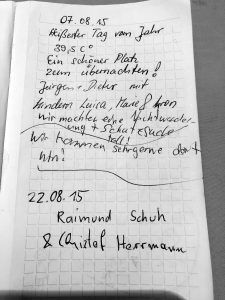 07.08.15
Heißester Tag vom Jahr
39,5 C°
Ein schöner Platz
zum übernachten!
Jürgen + Dieter mit
Kindern Luica, Marie &
wir machten eine Nachtwander-
ung + Schatzsuche
toll!
Wir kommen sehr gerne
hin!
22.08.15
Raimund Schuh
& Christof Herrmann